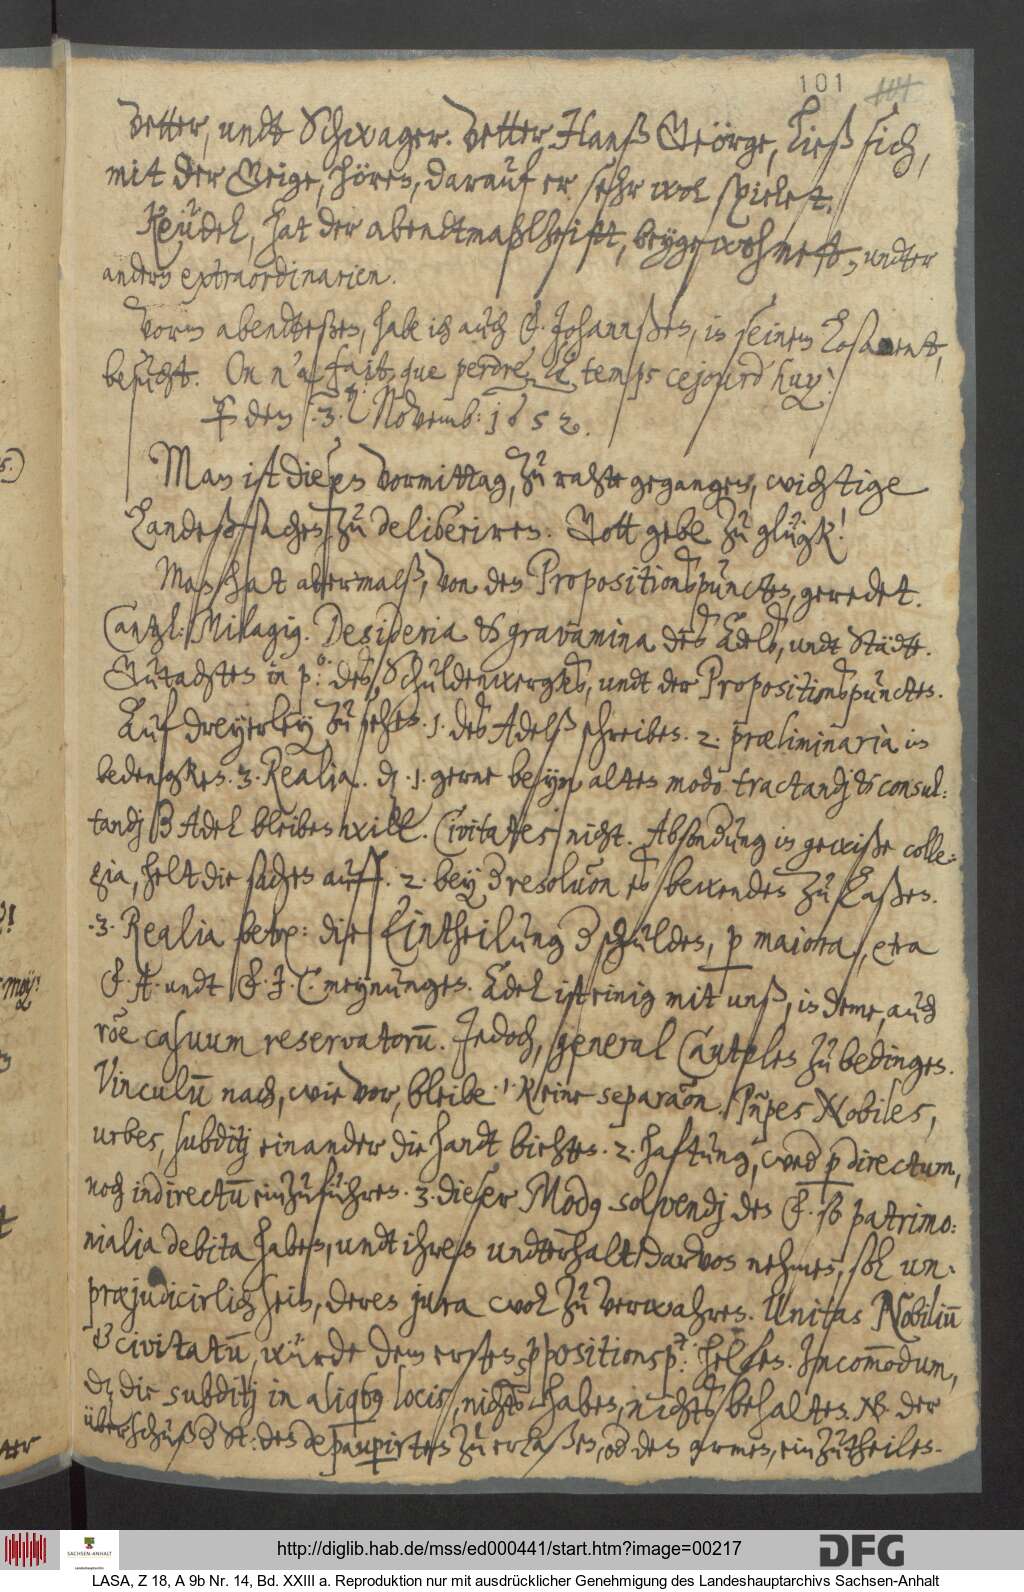 101 114
Vetter, undt Schwager. Vetter Hanß Geörge, ließ sich,
mit der Geige, hören, darauf er sehr wol spielet.
Keüdel, hat der abendtmahlzeitt, beygewohnett, undter
andern extraordinarien.
Vorm abendteßen, habe ich auch F. Johannßen, in seinem Losament,
besucht. On n'a fait, que perdre le temps cejourd'huy!
den 3. Novemb: 1652.
Man ist diesen Vormittag, zu rahte gegangen, wichtige
Landeßsachen zu deliberiren. Gott gebe zu glügk!
Man hat abermalß, von den Propositionspuncten, geredet.
Cantzl: Milagig. Desideria & gravamina des Adels, undt Städte.
Gutachten in po: des Schuldenwergks, undt der Propositionspuncten.
Auf dreyerley zu sehen. 1. des Adelß schreiben. 2. præliminaria in
bedengken. 3. Realia. d. 1. gerne beym alten modo tractandj & consul:
tandj Adel bleiben will. Civitates nicht. Absondung in gewiße colle:
gia, helt die sachen auff. 2. bey resoluon es bewenden zu laßen.
3. Realia betr: die Eintheilung schulden, p maiora, etra
F. A. undt F. J. C. meynungen. Adel ist einig mit unß, in deme, auch
roe casuum reservatorū. Jedoch, general Cautelen zu bedingen.
Vinculū nach, wie vor, bleibe. 1. Keine separaon. Pnpes Nobiles,
urbes, subditj einander die handt biehten. 2. Haftung, wed p directum,
noch indirectū einzuführen. 3. dieser Modg solvendj den F. so patrimo:
nialia debita haben, undt ihren undterhalt darvon nehmen, sol un:
præjudicirlich sein, deren jura wol zu verwahren. Unitas Nobiliū
& civitatū, würde dem ersten ppositionsp: helfen. Incom̄odum,
dz die subditj in aliqbg locis, nichts haben, nichts behalten. NB. der
überschuß d St: den depaupirten zu erlaßen, od den armen, einzutheilen.
http://diglib.hab.de/mss/ed000441/start.htm?image=00217
DFG
SACHSEN-ANHALT
LASA, Z 18, A 9b Nr. 14, Bd. XXIII a. Reproduktion nur mit ausdrücklicher Genehmigung des Landeshauptarchivs Sachsen-Anhalt